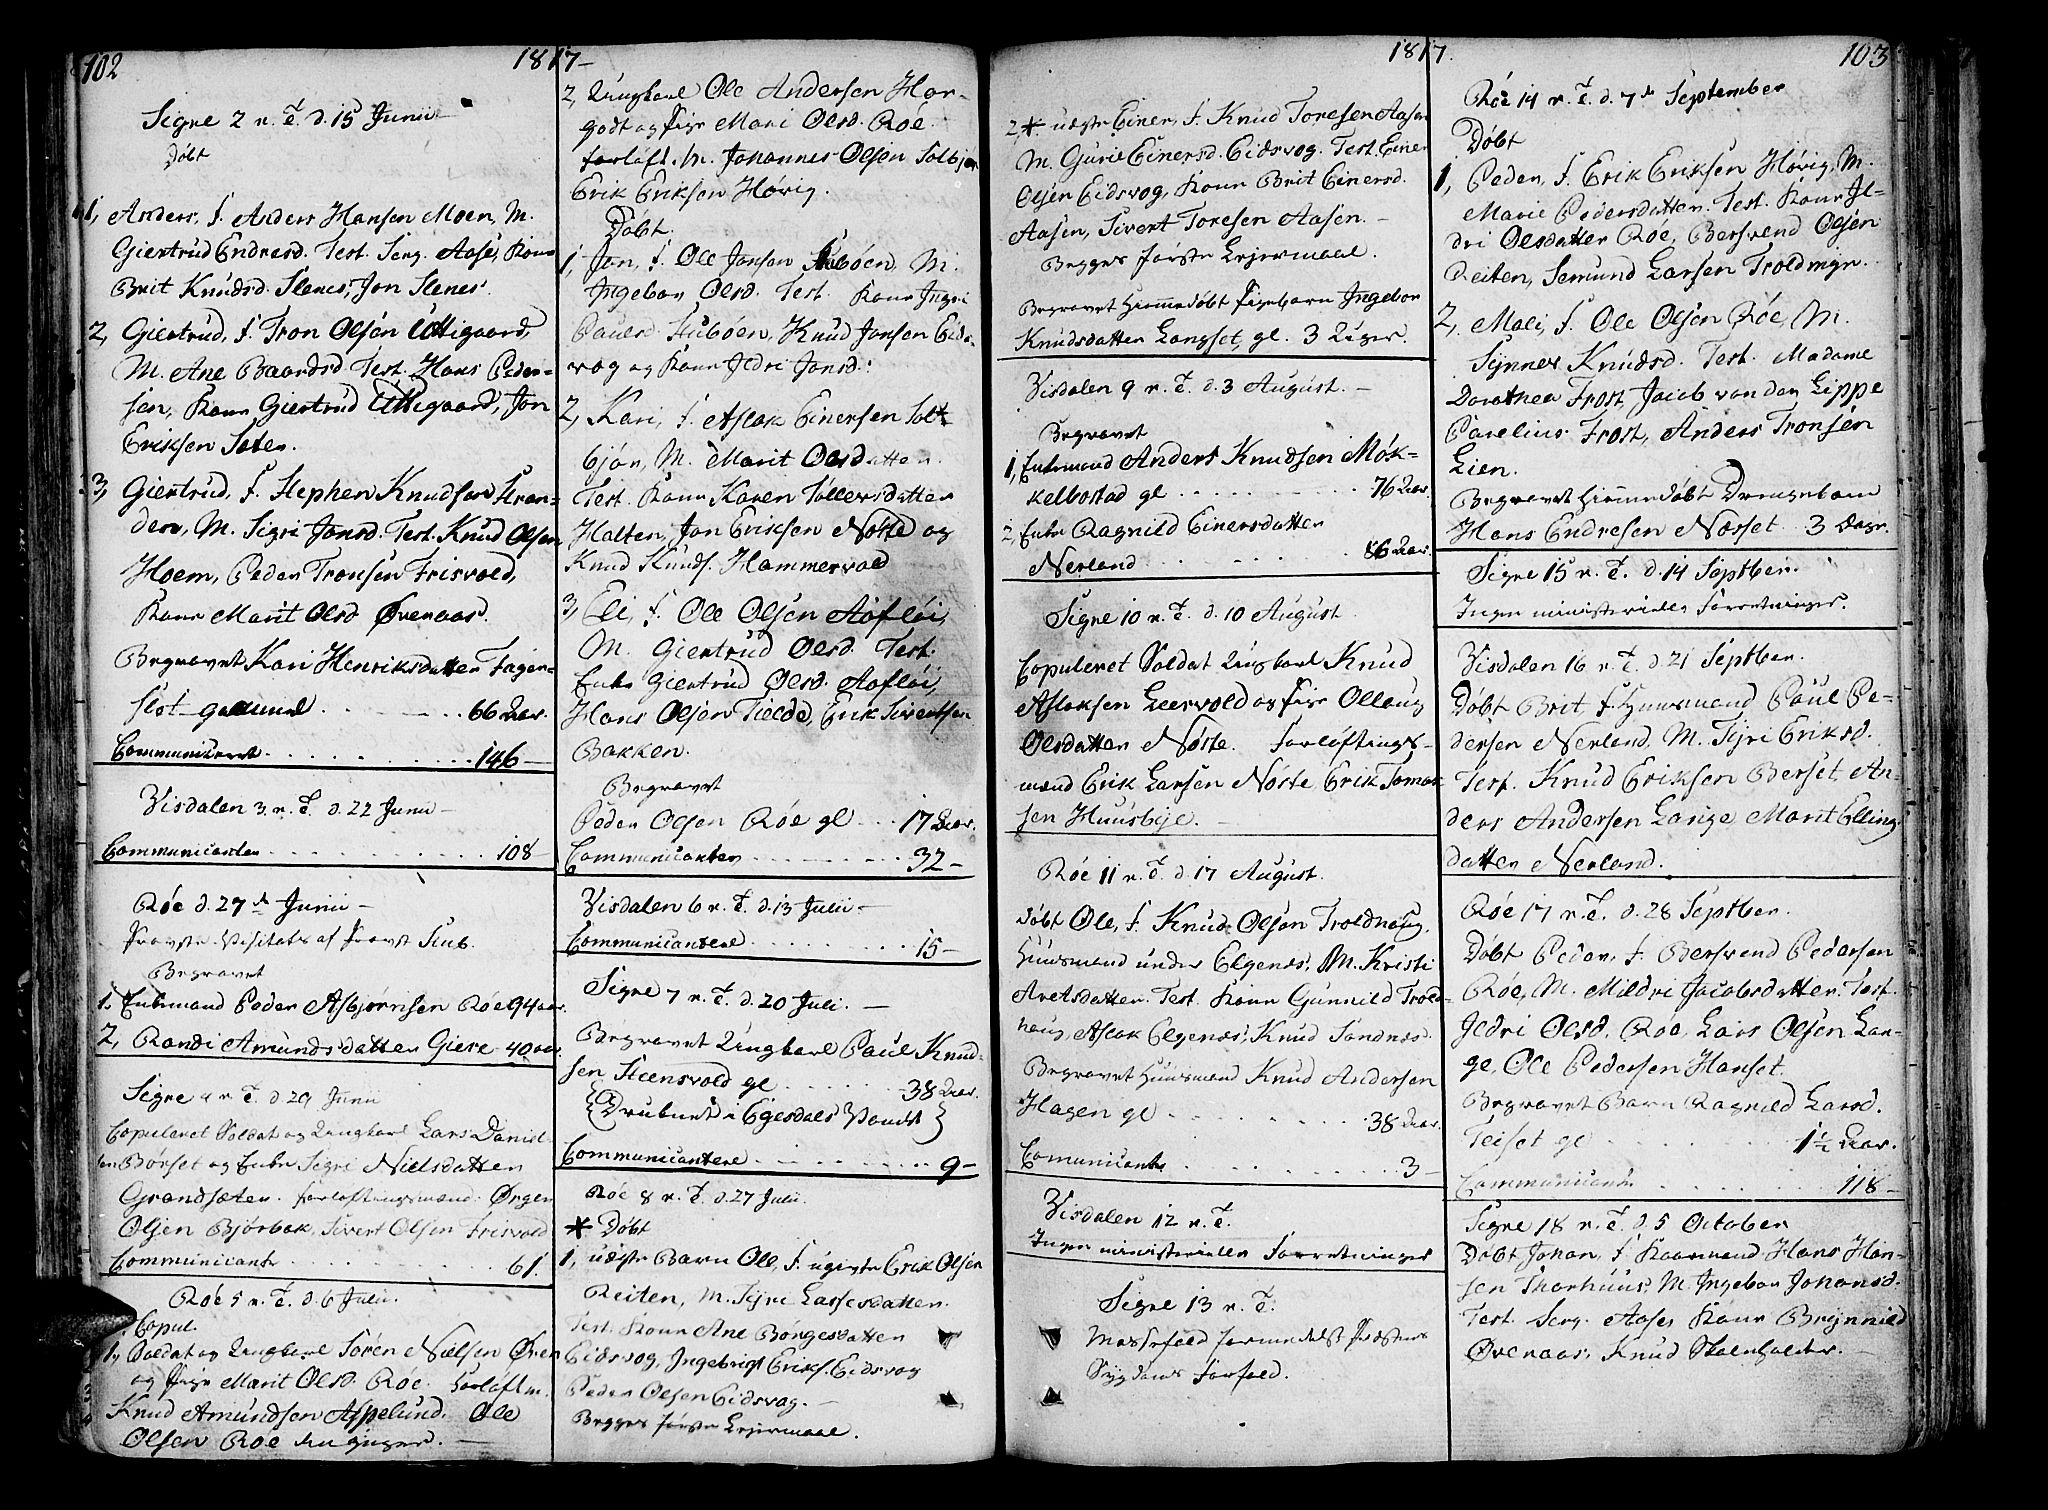 102
1817
Sigre 2 n. T. d. 15 Junii
Døbt
1, Anders, F. Anders Hansen Moen, M.
Giertrud Endresd. Test. Serg. Aase, Kone
Brit Knudsd. Slenes, Jon Slenes.
2, Giertrud, F. Tron Olsøn Utigaard,
M. Ane Baardsd. Test. Hans Peder-
sen, Kone Giertrud Utigaard, Jon
Eriksen Sæter.
3, Giertrud, F. Stephen Knudsøn Stran-
den, M. Sigri Jonsd. Test. Knud Olsen
Hoem, Peder Tronsen Frisvold,
Kone Marit Olsd Øvenaas.
Begravet Kari Henriksdatter Fager-
slot gammel . . . 66 Aar.
Communiceret . . . 146
Visdalen 3 n. T. d. 22 Junii
Communicanter . . . 108
Røe d. 27de Junii
Provste Visitats af Provst Stub.
Begravet
1. Enkemand Peder Asbjørnsen Røe 94 aar
2, Randi Amundsdatter Giere 40 aar.
Sigre 4 n. T. d. 29 Junii
Copuleret Soldat og Ungkarl Lars Daniel-
sen Børset og Enke Sigri Nielsdatter
Grandsæter. Forloftingsmænd Ørgen
Olsen Bjørbak, Sivert Olsen Frisvold
Communicanter . . . 61.
Røe 5 n. T. d. 6 Julii.
Copul.
1, Soldat og Ungkarl Søren Nielsen Øren
og Pige Marit Olsd. Roe. Forløft. m.
Knud Amundsen Aspelund. Ole
Olsen Roe
2, Ungkarl Ole Andersen Har-
godt og Pige Mari Olsd. Røe.
Forløft. M. Johannes Olsen Solbjør
Erik Eriksen Høvig.
Døbt.
1, Jon, F. Ole Jonsen Stubøen, M.
Ingebor Olsd. Test. Kone Ingri
Pauls. Stubøen, Knud Jonsen Eids-
vog og Kone Ildri Jonsd:
2, Kari, F. Aslak Einersen Sol-
bjør, M. Marit Olsdatter
Test. Kone Karen Tollevsdatter
Halten, Jon Eriksen Nøste og
Knud Knuds. Hammervold
3, Eli, F. Ole Olsøn Aafløi,
M. Giertrud Olsd. Test.
Enke Giertrud Olsd. Aafløi,
Hans Olsen Tielde, Erik Sivertsen
Bakken.
Begravet
Peder Olsen Røe gl . . . 17 Aar.
Communicanter . . . 32
Visdalen 6 n. T. d. 13 Julii
Communicantere . . . 15
Sigre 7 n. T. d. 20 Juli.
Begravet Ungkarl Paul Knud-
sen Steensvold gl . . . 38 Aar.
{Druknet i Egesdals Vandet}
Communicantere . . . 9
Røe 8 n. T. d. 27 Julii.
* Døbt
1, uægte Barn Ole, F. ugivte Erik Olsen
Reiten, M. Siri Lassesdatter.
Test. Kone Ane Børgesdatter
Eidsvog, Ingebrigt Eriks. Eidsvog
Peder Olsen Eidsvag.
Begges første Lejermaal.
1817.
103
2, * uægte Einer, F. Knud Toresen Aasen
M. Gurie Einersd. Eidsvog. Test. Einer
Olsen Eidsvog, Kone Brit Einersd.
Aasen, Sivert Toresen Aasen.
Begges første Lejermaal.
Begravet hiemmedøbt Pigebarn Ingebor
Knudsdatter Langset, gl. 3 Uger.
Visdalen 9 n. T. d. 3 August.
Begravet
1, Enkemand Anders Knudsen Møk-
kelbostad gl . . . 76 Aar.
2, Enke Ragnild Einersdatter
Nerland . . . 86 Aar.
Sigre 10 n. T. d. 10 August
Copuleret Soldat Ungkarl Knud
Aslaksen Leervold og Pige Ollaug
Olsdatter Nøste. Forløftings-
mænd Erik Larsen Nøste Erik Tomas-
sen Huusbye.
Røe 11 n. T. d. 17 August.
Døbt Ole, F. Knud Olsøn Troldhoug,
Huusmand under Elgenes, M. Kristi
Aretsdatter. Test. Kone Gunnild Trold-
houg, Aslak Elgenes, Knud Sandnes.
Begravet Huusmand Knud Andersen
Hagen gl . . . 38 Aar.
Comunicante . . . 3
Visdalen 12 n. T.
Ingen ministerielle Forretninger
Sigre 13 n. T.
Messefald formedelst Præstens
Sygdoms Forfald.
Røe 14 n. T. d. 7de September
Døbt
1, Peder, F. Erik Eriksen Høvig, M.
Marie Pedersdatter. Test. Kone Il-
dri Olsdatter Roe, Bersvend Olsen
Reiten, Semund Larsen Troldmyr.
2, Mali, F. Ole Olsen Røe, M.
Synnev Knudsd. Test. Madame
Dorothea Frost, Jacob von der Lippe
Parelius Frost, Anders Tronsen
Lien.
Begravet hiemmedøbt Drengebarn
Hans Endresen Næsset . . 3 Dage.
Sigre 15 n. T. d. 14 Septber.
Ingen ministerielle Forretninger.
Visdalen 16 n. T. d. 21 Septber.
Døbt Brit F. Huusmand Paul Pe-
dersen Nerland, M. Siri Eriksd.
Test. Knud Eriksen Berset, An-
ders Andersen Lange Marit Elling-
datter Nerland.
Røe 17 n. T. d. 28 Septber.
Døbt Peder, F. Bersvend Pedersen
Røe, M. Mildri Jacobsdatter. Test.
Ildri Olsd. Røe, Lars Olsen Lan-
ge, Ole Pedersen Hanset.
Begravet Barn Ragnild Larsd.
Teiset gl . . . 1½ Aar.
Communicanter . . . 118
Sigre 18 n. T. d. 5 October
Døbt Johan, F. Kaarmand Hans Han-
sen Thorhuus, M. Ingebor Johansd.
Test. Serg. Aase, Kone Brynnild
Øvenaas, Knud Skoleholder.